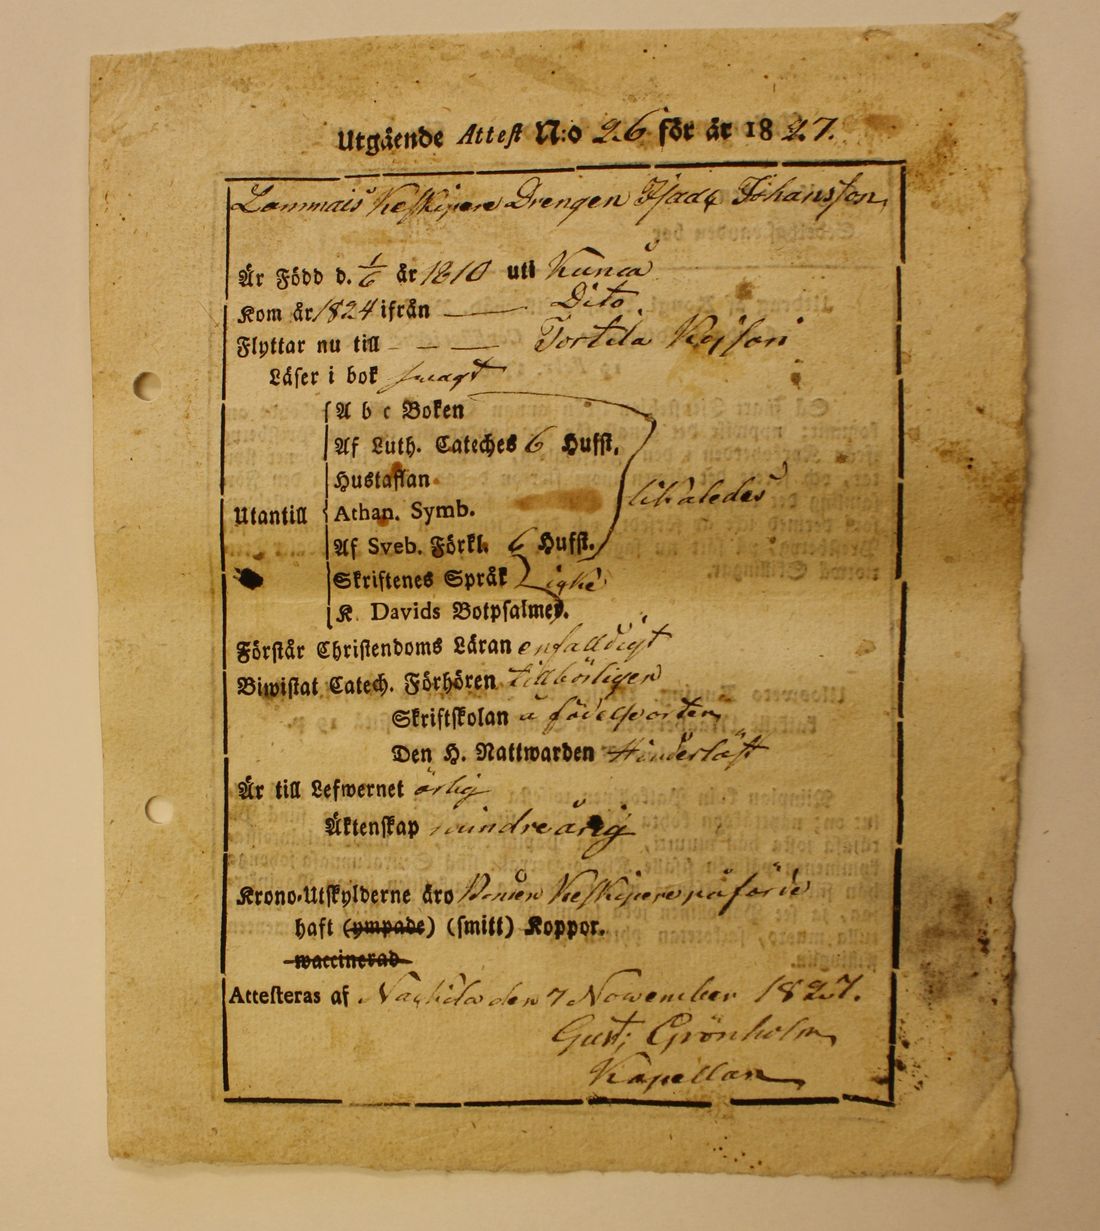 Utgående Attest N:o 26 för år 1827.
Lammais Keskipere Drengen Isaac Johansson
Är Född d. 1/6 år 1810 uti Kunca
Kom år 1824 ifrån — Dito
Flyttar nu till — — — Tortila
Läser i bok swagt
A b c Boken
Af Luth. Cateches 6 Hufst.
Hustaflan
likaledes
Utantill
Athan. Symb.
Af Sveb. Förkl. 6 Hufst.
Skriftenes Språk
K. Davids Botpsalmer.
Förstår Christendoms Läran enfalldigt
Biwistat Catech. Förhören tillbörligen
Skriftskolan å födelseorten
Den H. Nattwarden Hinderlöst
Är till Lefwernet ärlig
Äktenskap mindreårig
Krono-Utskylderne äro Keskipere påförde
haft (ympade) (smitt) Koppor.
waccinerad
Attesteras af Nackila den 7 Nowember 1827.
Gust: Grönholm
Kapellan